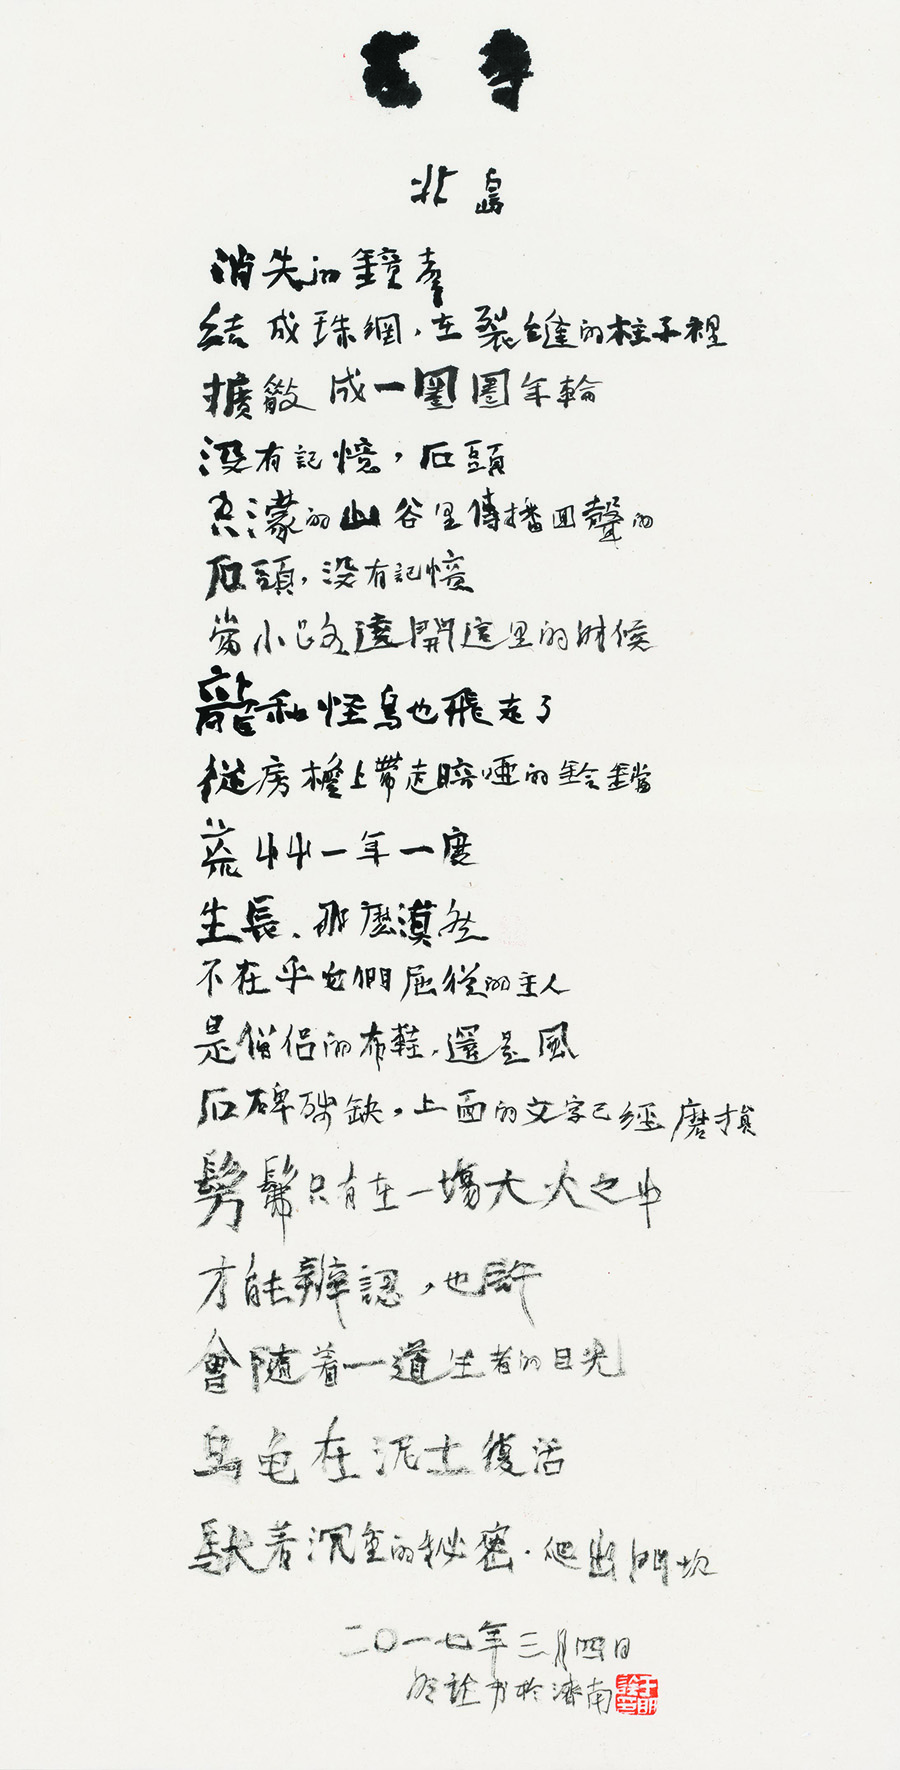 古寺
北島
消失的鐘聲
結成珠網,在裂縫的柱子裡
擴散成一圈圈年輪
沒有記憶,石頭
空濛的山谷里傳播回聲的
石頭,沒有記憶
當小路遶開這里的时候
龍和怪鳥也飛走了
從房檐上帶走暗啞的鈴鐺
荒艸一年一度
生長,那麼漠然
不在乎它們屈從的主人
是僧侶的布鞋,還是風
石碑残缺,上面的文字已經磨損
髣髴只有在一場大火之中
才能辨認,也許
會隨着一道生者的目光
烏龟在泥土復活
馱着沉重的秘密,爬出門坎
二〇一七年三月四日
明詮书於濟南